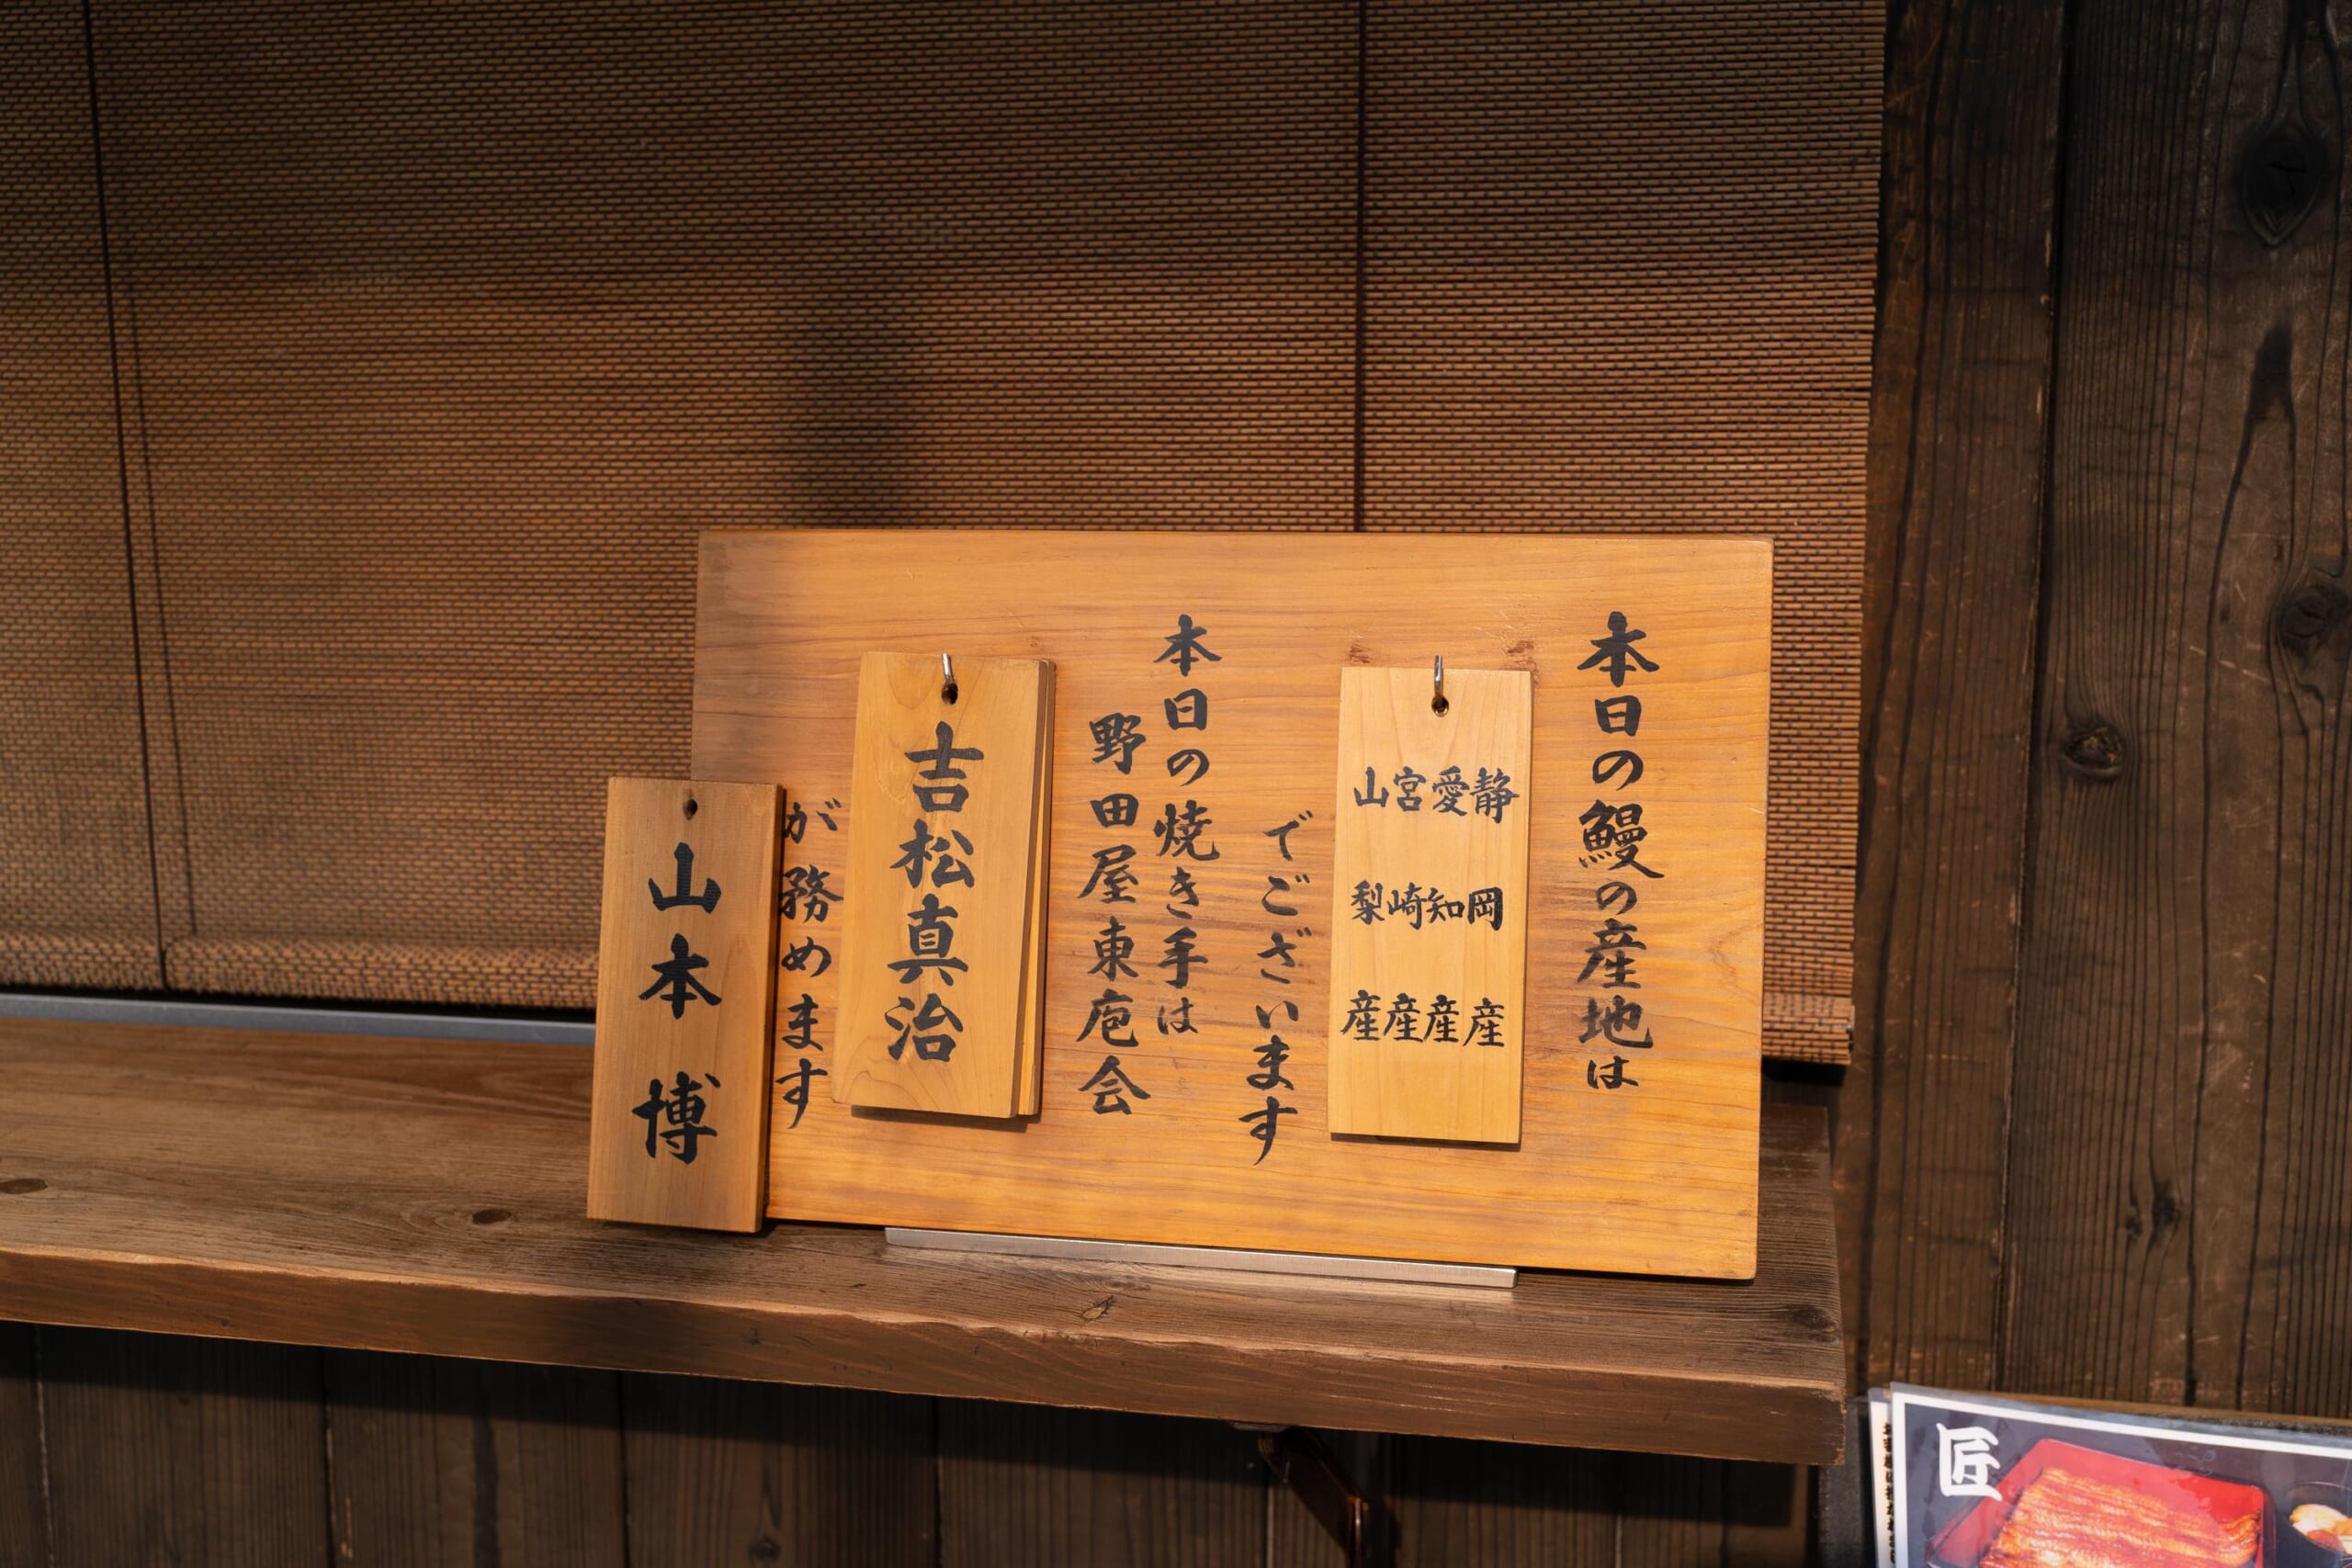 本日の鰻の産地は
静岡産
愛知産
宮崎産
山梨産
でございます
本日の焼き手は
野田屋東庖会
吉松真治
が務めます
山本博
匠